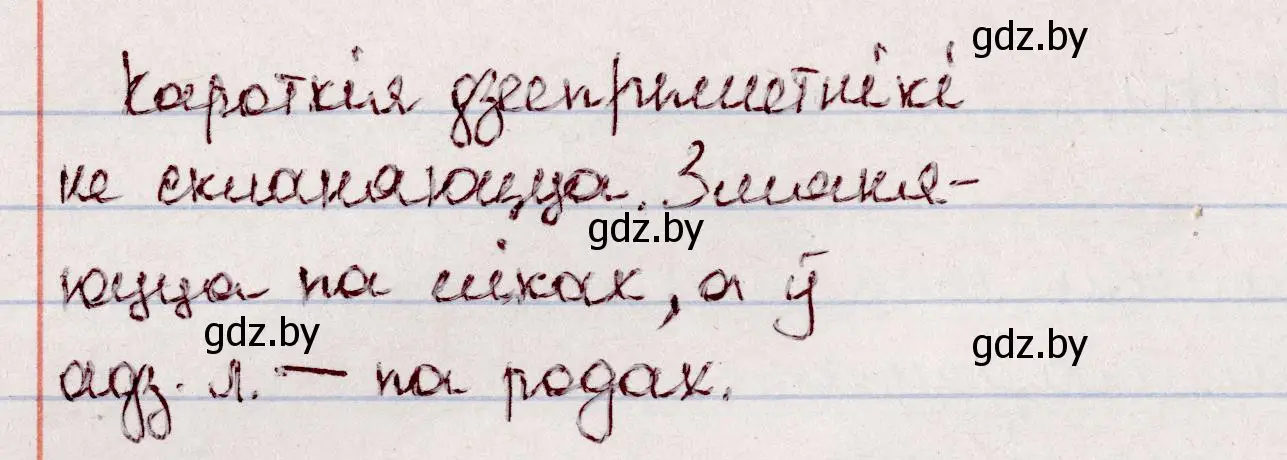 gdz.by
Кароткія дзеепрыметнікі
не скланяюцца. Змяня-
gdz.by
юцца па ліках, а ў
gdz.by
gdz.by
адз. л. — па родах.